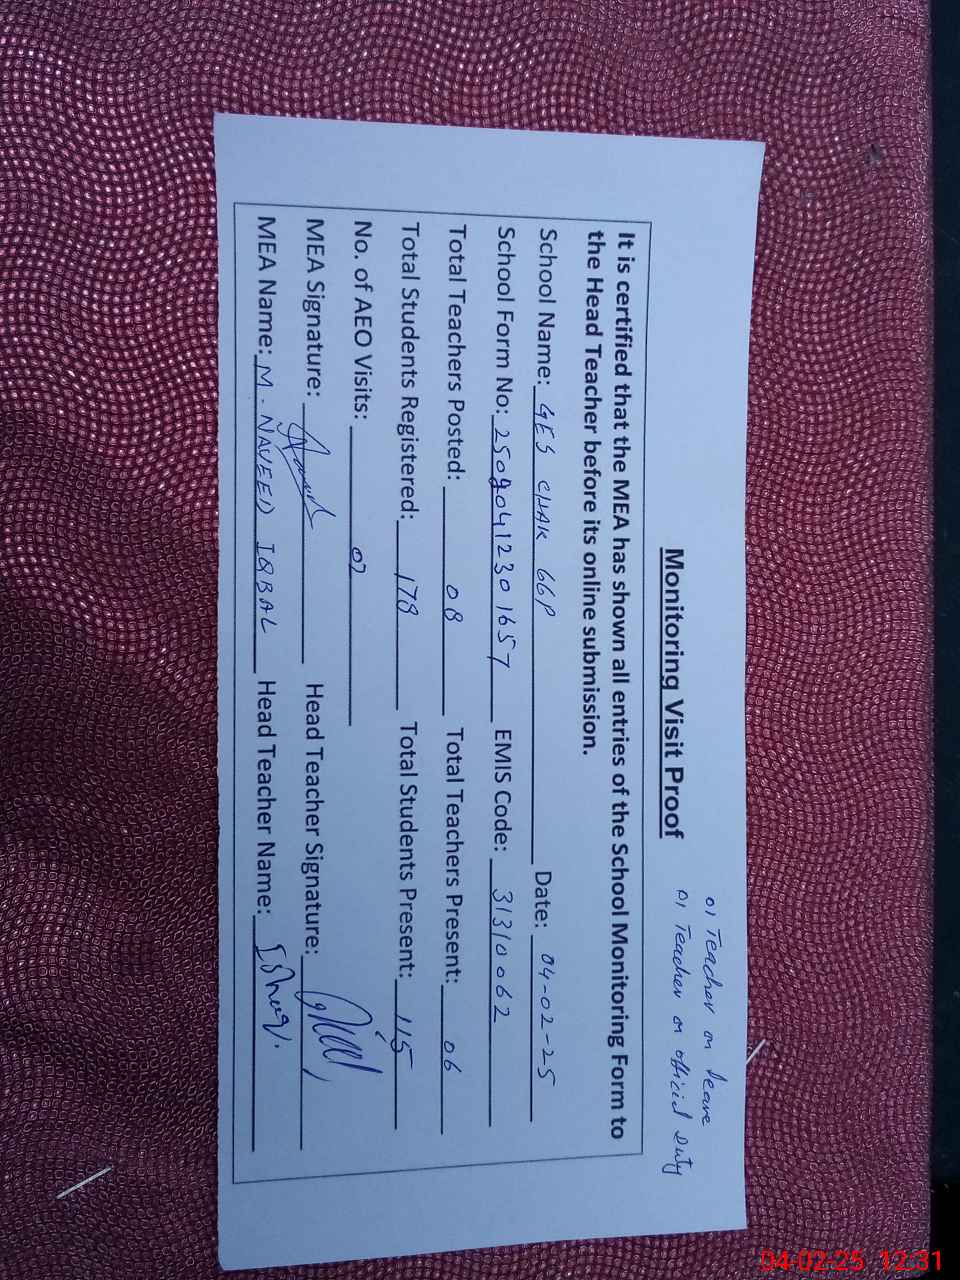 01 Teacher on leave
01 Teacher on official Duty
Monitoring Visit Proof
It is certified that the MEA has shown all entries of the School Monitoring Form to
the Head Teacher before its online submission.
School Name: GES CHAK 66P Date: 04-02-25
School Form No: EMIS Code: 31310062
Total Teachers Posted: 08 Total Teachers Present: 06
Total Students Registered: 178 Total Students Present: 115
No. of AEO Visits:
MEA Signature: Head Teacher Signature:
MEA Name: M. NAVEED IQBAL Head Teacher Name:
04-02-25 12:31